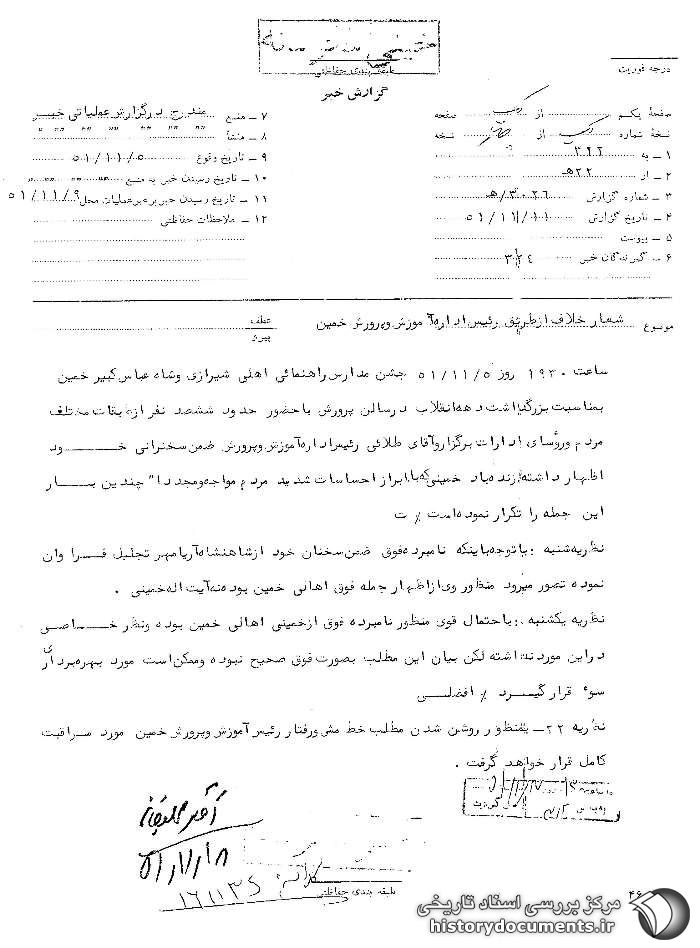 طبقه بندی حفاظتی
درجه فوریت
گزارش خبر
صفحهٔ یکم از یک صفحه
نسخهٔ شماره یک از نسخه
۱ ـ به ۳۲۲
۲ ـ از ۲۲هـ
۳ ـ شماره گزارش ۳۰۲۶/هـ
۴ ـ تاریخ گزارش ۵۱/۱۱/۱۱
۵ ـ پیوست
۶ ـ گیرندگان خبر ۳۲٤
۷ ـ منبع مندرج در گزارش عملیاتی خبر
۸ ـ منشأ " " " " "
۹ ـ تاریخ وقوع ۵۱/۱۱/۵
۱۰ ـ تاریخ رسیدن خبر به منبع " " "
۱۱ ـ تاریخ رسیدن خبر به رهبر عملیات محل ۵۱/۱۱/۹
۱۲ ـ ملاحظات حفاظتی
موضوع شعار خلاف از طریق رئیس اداره آموزش و پرورش خمین
عطف
پیرو
ساعت ۱۹۳۰ روز ۵۱/۱۱/۵ جشن مدارس راهنمائی اهلی شیرازی وشاه عباس کبیر خمین
بمناسبت بزرگداشت دهه انقلاب درسالن پرورش باحضور حدود ششصد نفر ازطبقات مختلف
مردم ورؤسای ادارات برگزاروآقای طلائی رئیس اداره آموزش وپرورش ضمن سخنرانی خود
اظهار داشته زنده باد خمینی که با ابراز احساسات شدید مردم مواجه ومجددا" چندین بار
این جمله را تکرار نموده است٪ ت
نظریه شنبه : باتوجه باینکه نامبرده فوق ضمن سخنان خود ازشاهنشاه آریامهر تجلیل فراوان
نموده تصور میرود منظور وی ازاظهار جمله فوق اهالی خمین بوده نه آیت اله خمینی .
نظریه یکشنبه : باحتمال قوی منظور نامبرده فوق ازخمینی اهالی خمین بوده ونظر خاصی
دراین مورد نداشته لکن بیان این مطلب بصورت فوق صحیح نبوده وممکن است مورد بهره برداری
سوء قرار گیرد ٪ افضلی
نظریه ۲۲ـ بمنظور روشن شدن مطلب خط مشی ورفتار رئیس آموزش وپرورش خمین مورد مراقبت
کامل قرار خواهد گرفت .
طبقه بندی حفاظتی
۴۶
مرکز بررسی اسناد تاریخی
historydocuments.ir